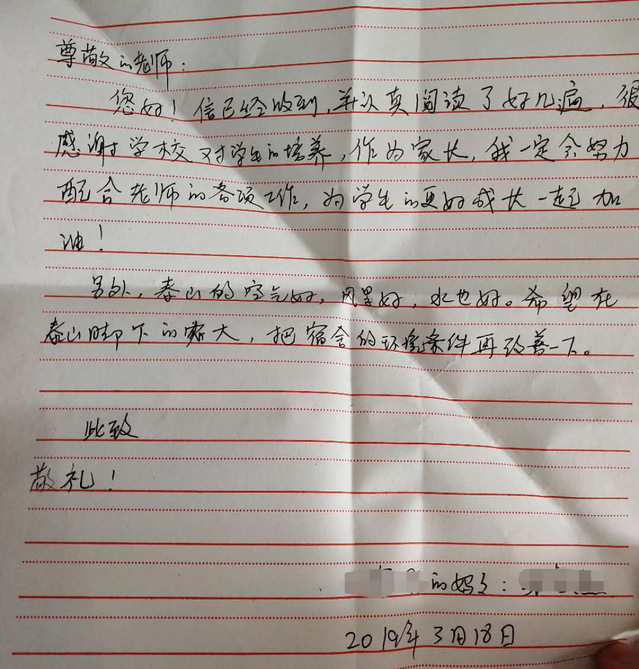 尊敬的老师：
您好！信已经收到，并认真阅读了好几遍，很
感谢学校对学生的培养，作为家长，我一定会努力
配合老师的各项工作，为学生的更好成长一起加
油！
另外，泰山的空气好，风景好，水也好。希望在
泰山脚下的农大，把宿舍的环境条件再改善一下。
此致
敬礼！
的妈妈：
2019年3月18日